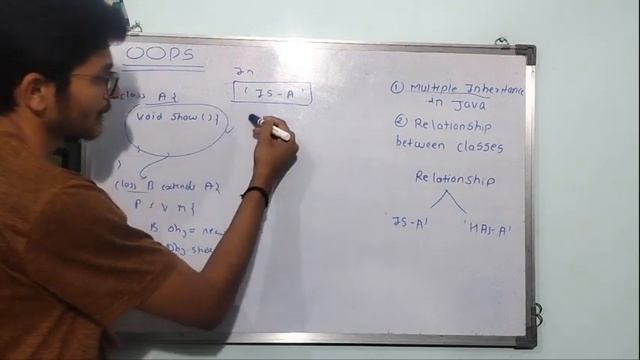 OOPS
class A{
void show(){
}
class B extends A{
P S V M{
B obj = new
Obj.show
In
'IS-A'
① Multiple Inheritance
in Java
② Relationship
between classes
Relationship
IS-A'
'HAS-A'